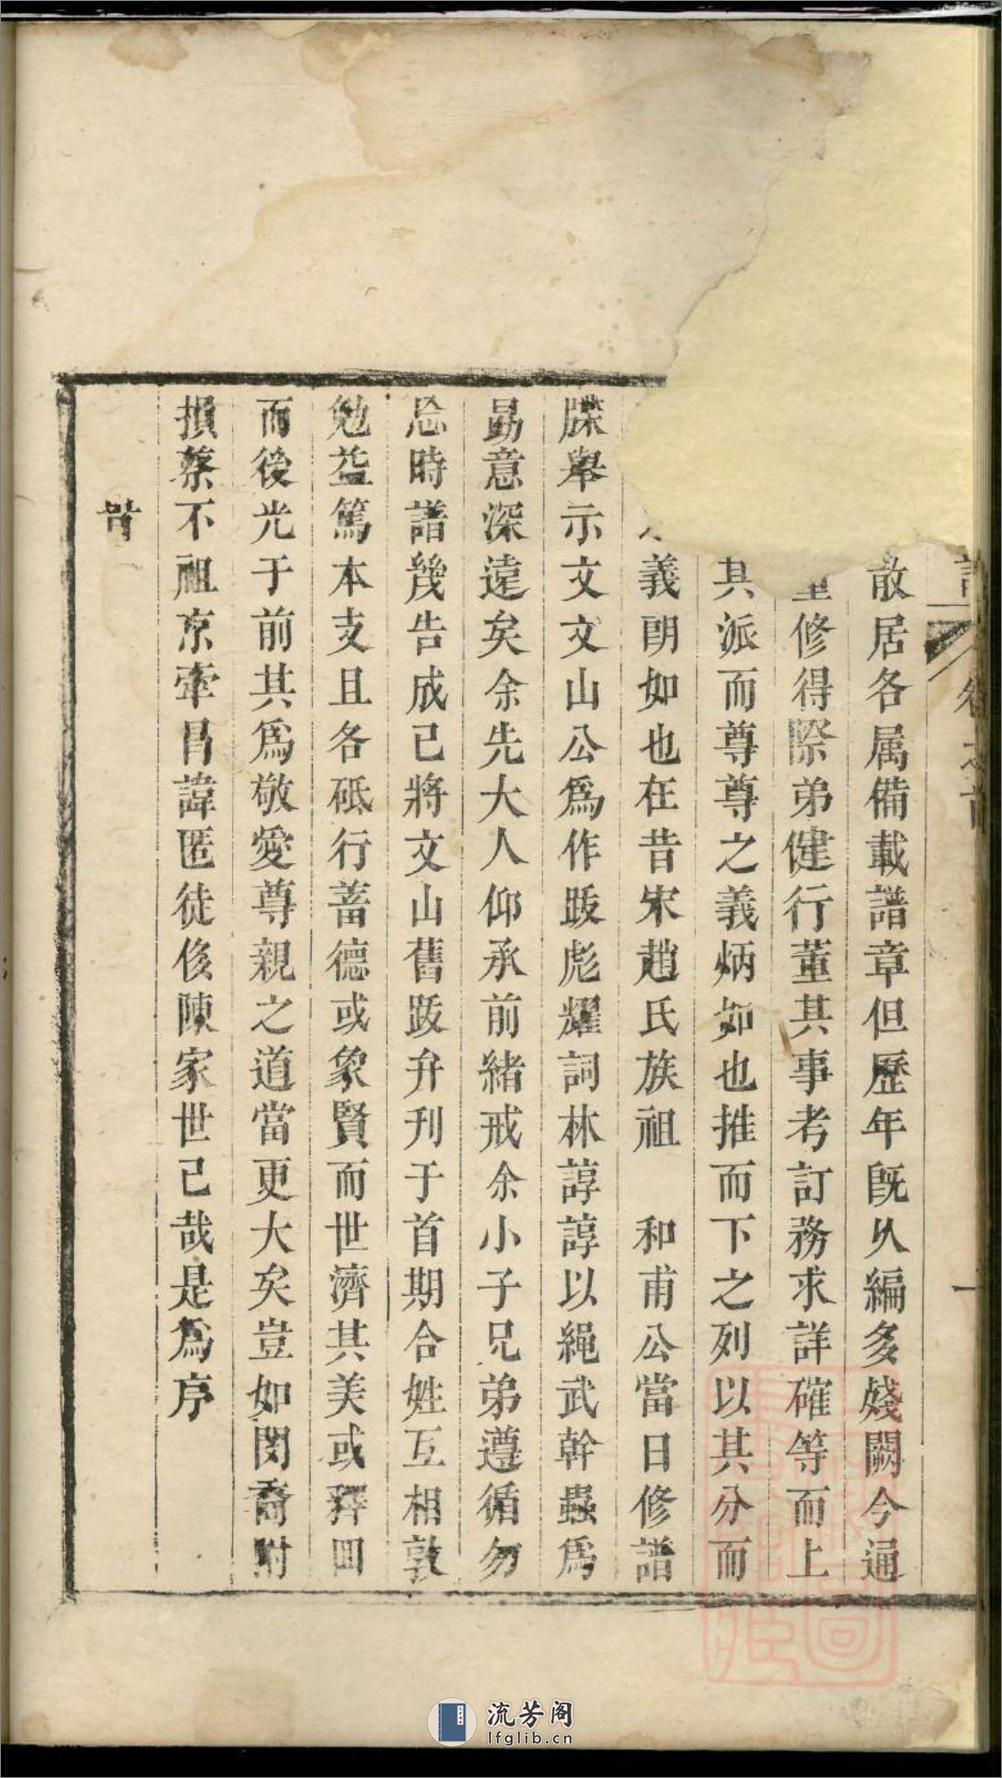 卷之首
一
散居各属備載譜章但歷年既乆編多殘闕今通
重修得際弟健行董其事考訂務求詳確等而上
其派而尊尊之義炳如也推而下之列以其分而
義明如也在昔宋趙氏族祖 和甫公當日修譜
牒舉示文文山公爲作跋彪耀詞林諄諄以繩武幹蠱爲
勗意深遠矣余先大人仰承前緒戒余小子兄弟遵循勿
忘時譜幾告成已將文山舊跋弁刊于首期合姓互相敦
勉益篤本支且各砥行蓄德或象賢而世濟其美或釋回
而後光于前其爲敬愛尊親之道當更大矣豈如閔裔附
損蔡不祖京牽昌諱匿徒侈陳家世已哉是爲序
流芳阁
lfglib.cn